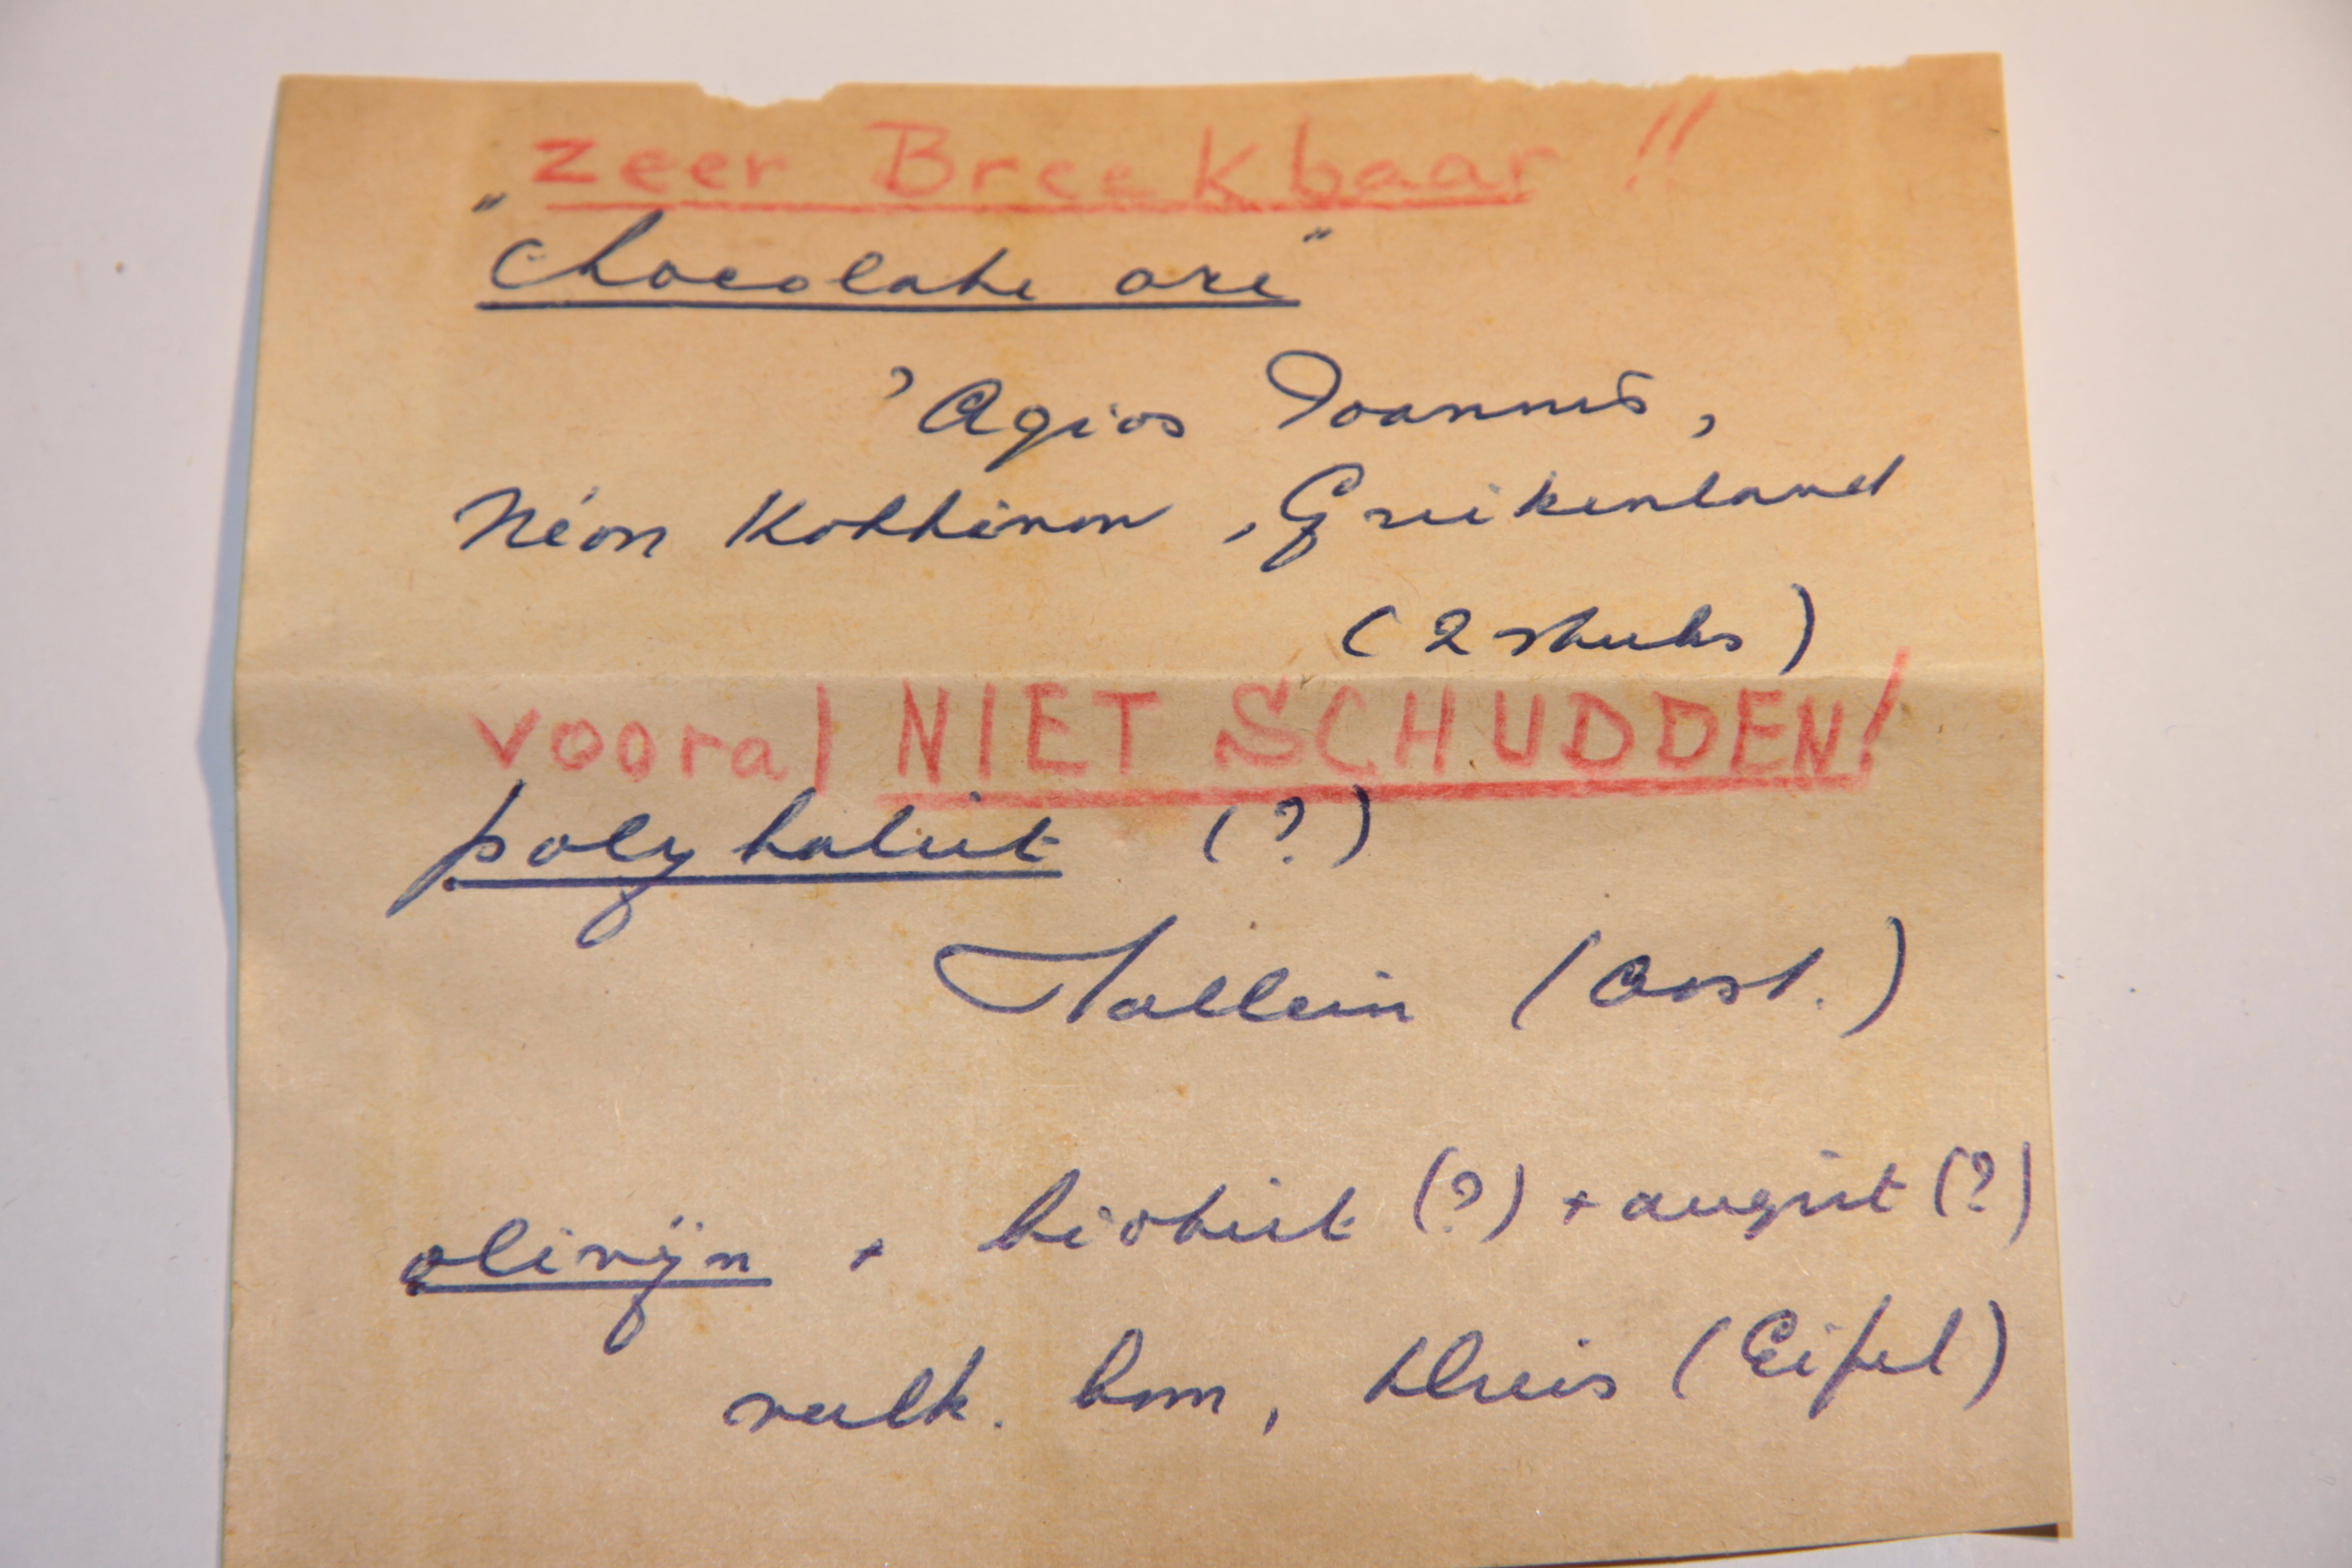 zeer Breekbaar !!
"chocolate ore"
'Agios Ioannis,
Néon Kokkinon, Griekenland
(2 stuks)
vooral NIET SCHUDDEN!
polyhaliet (?)
Hallein (Oost.)
olivijn + biotiet (?) + augiet (?)
vulk. bom, Dreis (Eifel)